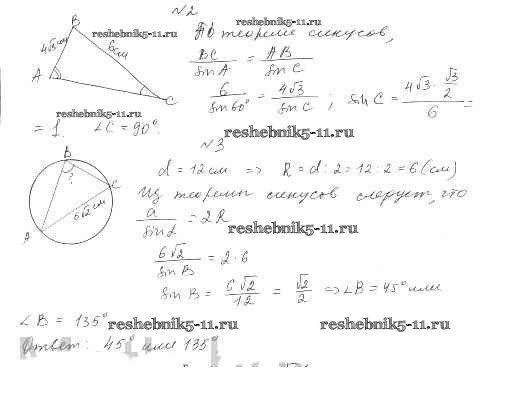 №2
reshebnik5-11.ru
B
По теореме синусов,
4√3 см
6 см
reshebnik5-11.ru
A
C
BC/sin A = AB/sin C
6/sin 60° = 4√3/sin C ; sin C = (4√3 · √3/2)/6 =
reshebnik5-11.ru
= 1. ∠C = 90°.
reshebnik5-11.ru
№3
B
?
C
A
6√2 см
d = 12 см => R = d : 2 = 12 : 2 = 6 (см)
Из теоремы синусов следует, что
a/sin α = 2R
reshebnik5-11.ru
6√2/sin B = 2·6
sin B = 6√2/12 = √2/2 => ∠B = 45° или
∠B = 135°
reshebnik5-11.ru
reshebnik5-11.ru
Ответ: 45° или 135°